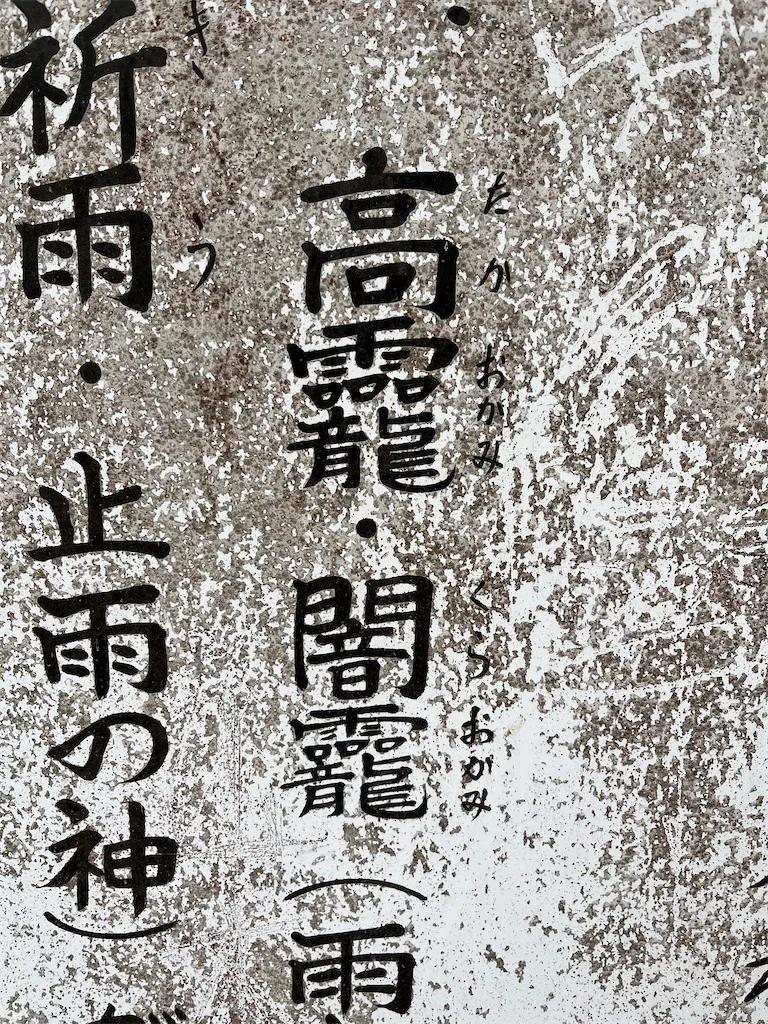 ・高龗・闇龗(雨
たか おかみ くら おがみ
祈雨・止雨の神)
きう